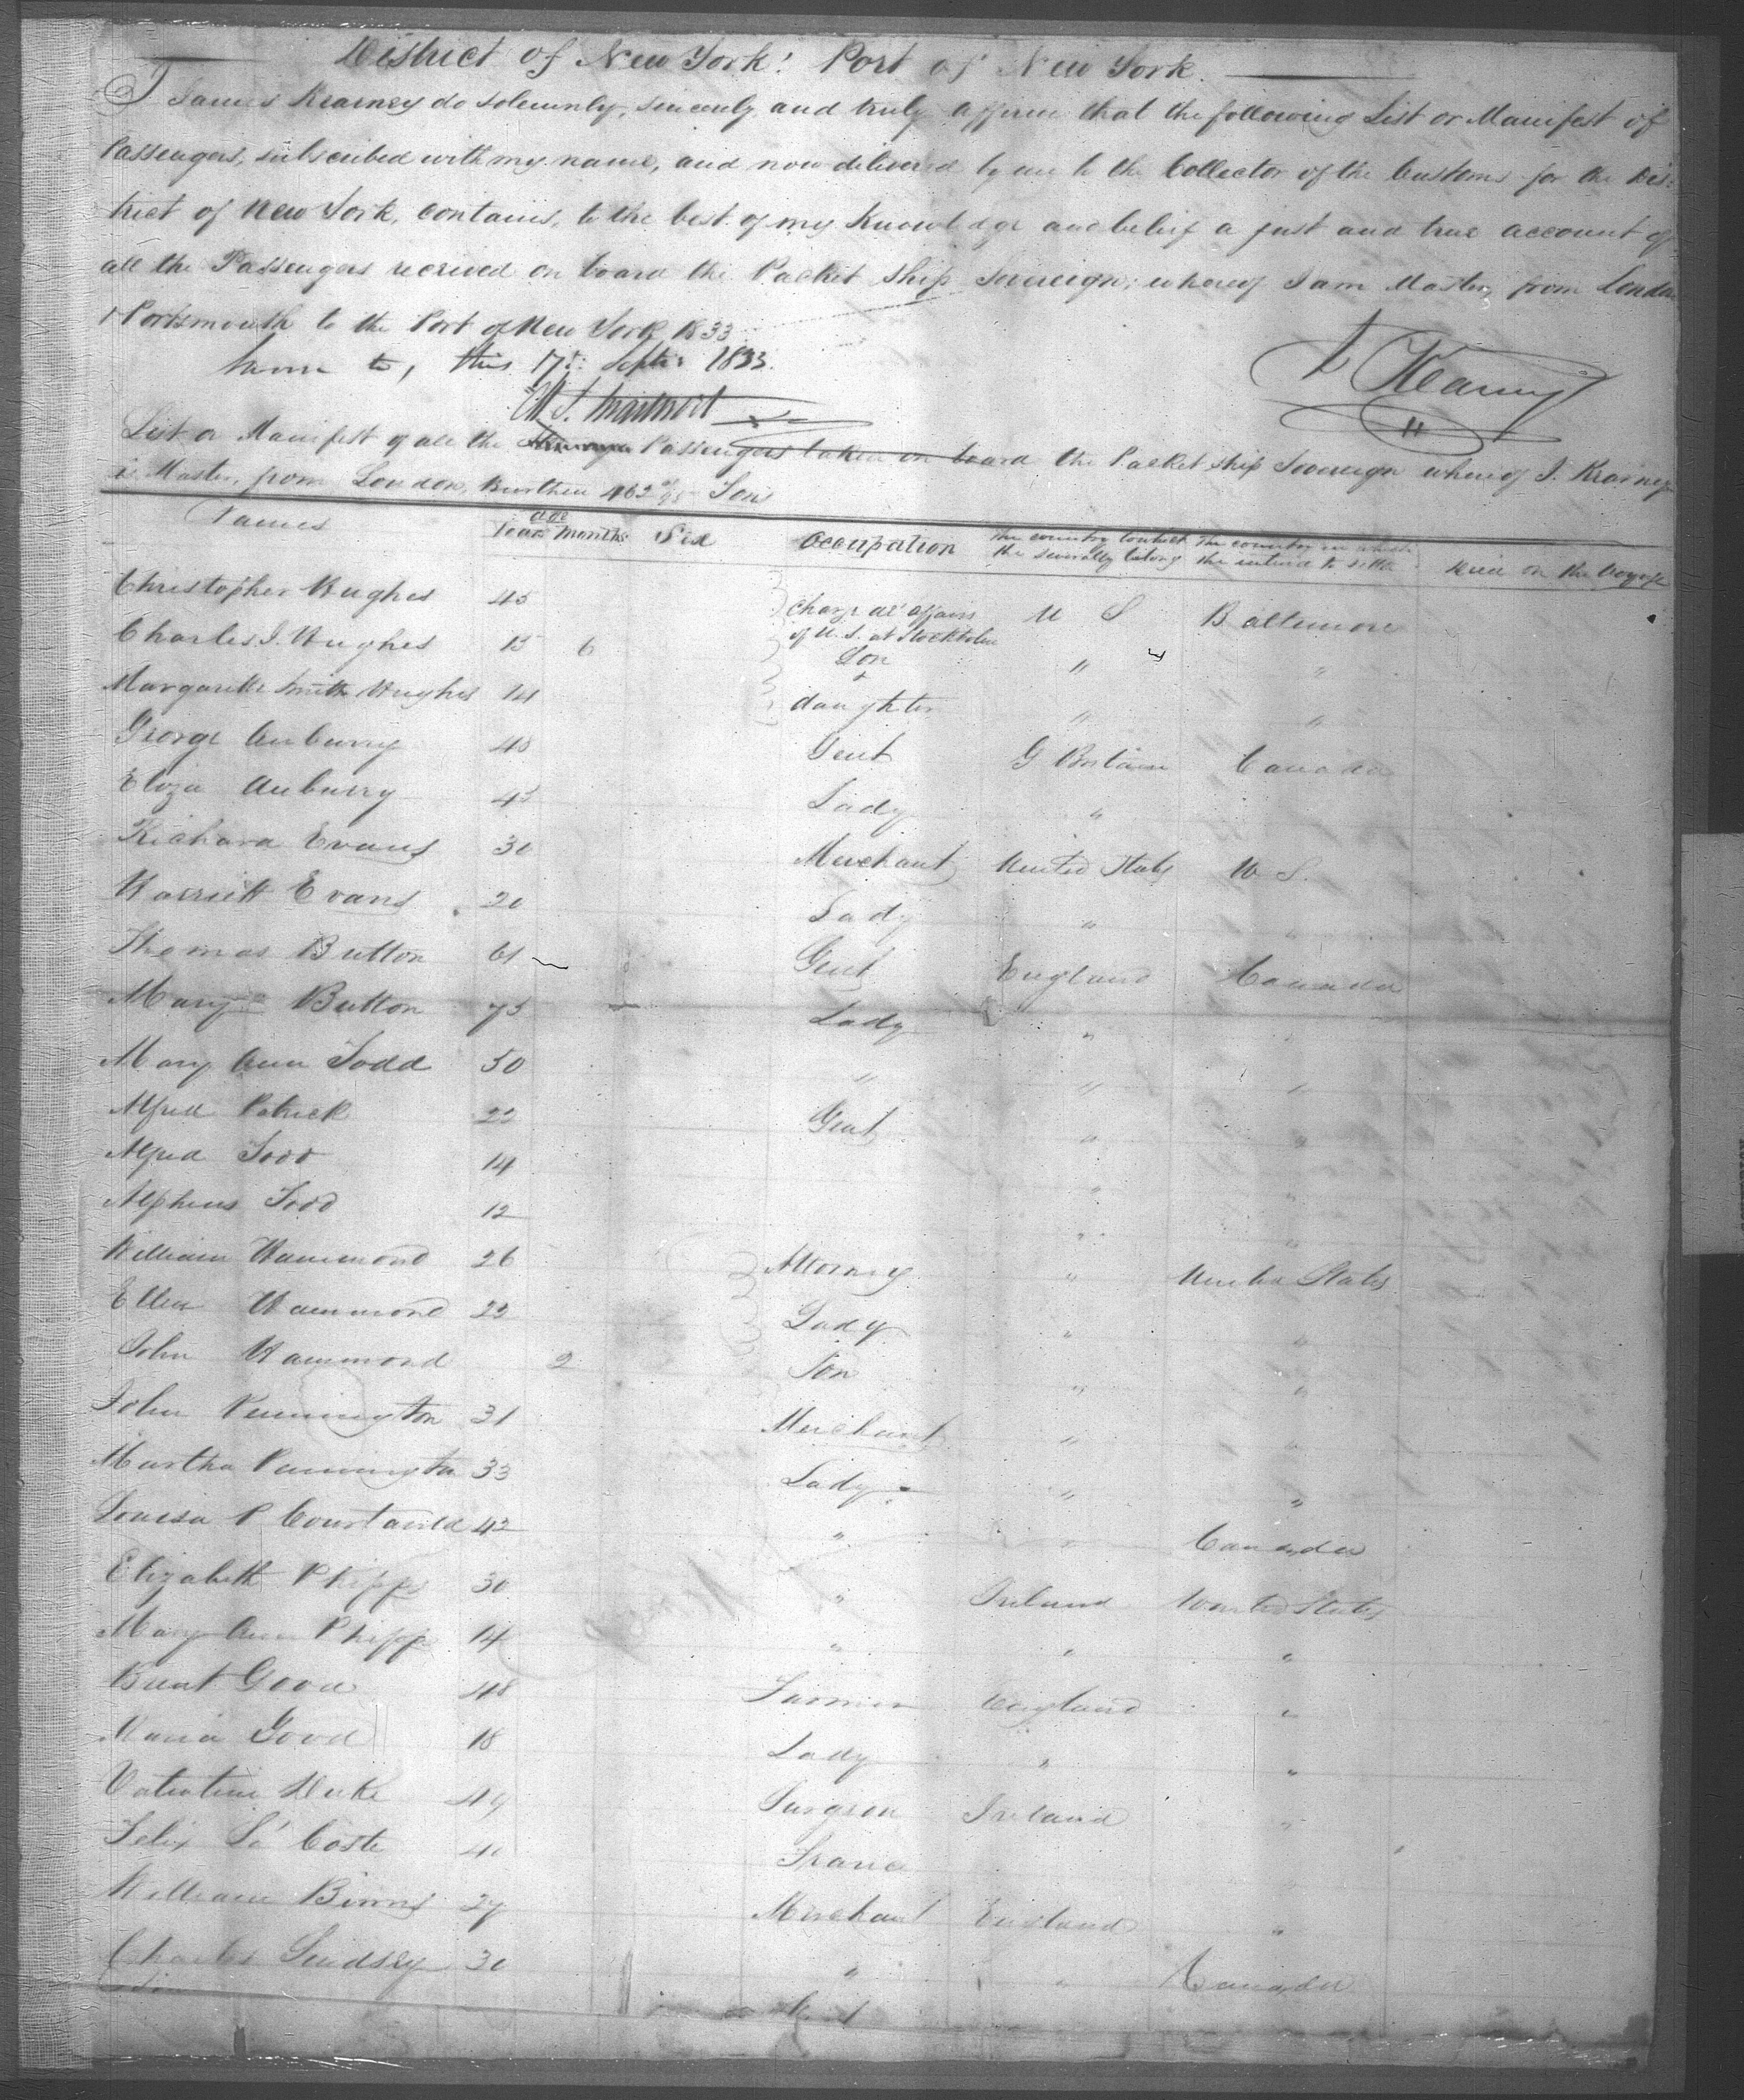 District of New York: Port of New York.
I James Kearney do solemnly, sincerely and truly affirm that the following List or Manifest of
Passengers, subscribed with my name, and now delivered by me to the Collector of the Customs for the Dis:
trict of New York, contains, to the best of my Knowledge and belief a just and true account of
all the Passengers received on board the Packet Ship Sovereign; whereof I am Master, from London
& Portsmouth to the Port of New York 1833
Sworn to, this 17th Septr 1833.
Kearney
List or Manifest of all the Passengers taken on board the Packet ship Sovereign whereof J. Kearney
is Master, from London, Burthen 462 Tons
Names Age Years Months Sex Occupation The country to which the severally belong The country in which the intend to settle Died on the Voyage
Christopher Hughes 45 Charge de' affairs of U.S. at Stockholm U S Baltimore
Charles J. Hughes 15 6 Son " "
Margarette Smith Hughes 14 + daughter " "
George Anburry 48 Gent G Britain Canada
Eliza Anburry 45 Lady "
Richard Evans 30 Merchant United States U. S.
Harriett Evans 20 Lady " "
Thomas Button 61 Gent England Canada
Mary Button 75 Lady " "
Mary Ann Todd 50 " " "
Alfred Patrick 22 Gent " "
Alfred Todd 14 " "
Alpheus Todd 12 " "
William Hammond 26 Attorney " United States
Ellen Hammond 22 Lady " "
John Hammond 2 Son " "
John Pennington 31 Merchant " "
Martha Pennington 33 Lady " "
Louisa P Courtauld 42 " " Canada
Elizabeth Phipps 30 " Ireland United States
Mary Ann Phipps 14 " " "
Brent Good 48 Farmer England "
Maria Good 18 Lady " "
Valentine Duke 49 Surgeon Ireland "
Felix La' Coste 40 France
William Binns 27 Merchant England "
Charles Lindsey 30 " " Canada